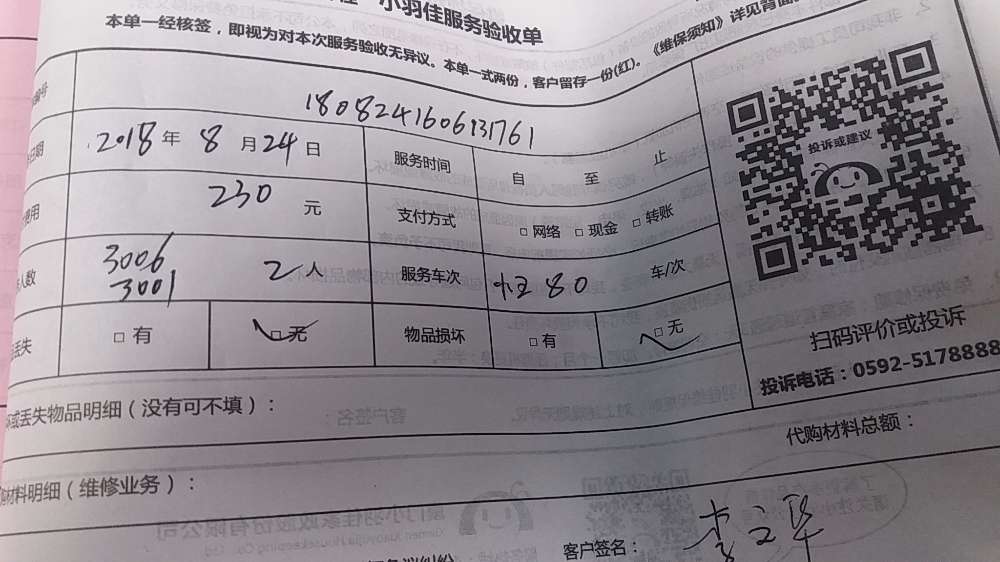 小羽佳服务验收单
本单一经核签，即视为对本次服务验收无异议。本单一式两份，客户留存一份(红)。
《维保须知》详见背面
编号
1808241606931761
日期 2018年 8月24日 服务时间 自 至 止
费用 230 元 支付方式 □网络 □现金 □转账
人数 3006 3001 2人 服务车次 80 车/次
丢失 □有 □无 物品损坏 □有 □无
投诉或建议
扫码评价或投诉
投诉电话：0592-5178888
或丢失物品明细（没有可不填）：
代购材料总额：
材料明细（维修业务）：
客户签名：